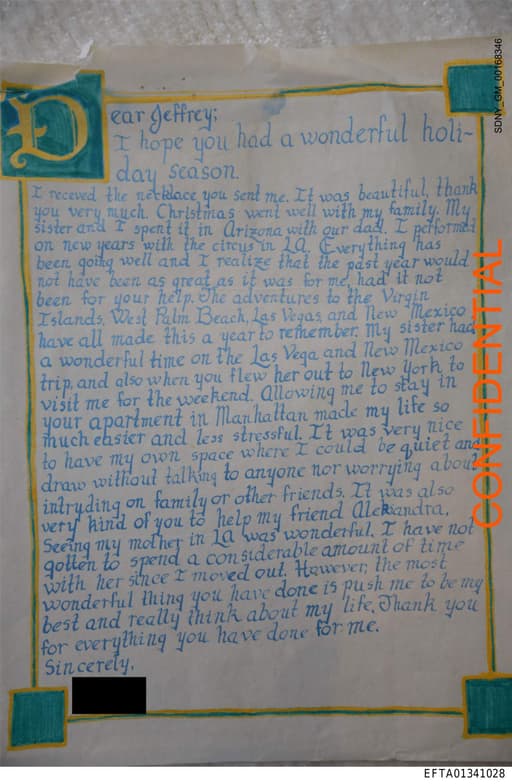 Dear Jeffrey;
I hope you had a wonderful holi-
day season.
I receved the necklace you sent me. It was beautiful, thank
you very much. Christmas went well with my family. My
sister and I spent it in Arizona with our dad. I performed
on new years with the circus in LA. Everything has
been going well and I realize that the past year would
not have been as great as it was for me, had it not
been for your help. The adventures to the Virgin
Islands, West Palm Beach, Las Vegas, and New Mexico
have all made this a year to remember. My sister had
a wonderful time on the Las Vega and New Mexico
trip, and also when you flew her out to New York to
visit me for the weekend. Allowing me to stay in
your apartment in Manhattan made my life so
much easier and less stressful. It was very nice
to have my own space where I could be quiet and
draw without talking to anyone nor worrying about
intruding on family or other friends. It was also
very kind of you to help my friend Aleksandra.
Seeing my mother in LA was wonderful. I have not
gotten to spend a considerable amount of time
with her since I moved out. However, the most
wonderful thing you have done is push me to be my
best and really think about my life. Thank you
for everything you have done for me.
Sincerely,
SDNY_GM_00168346
CONFIDENTIAL
EFTA01341028